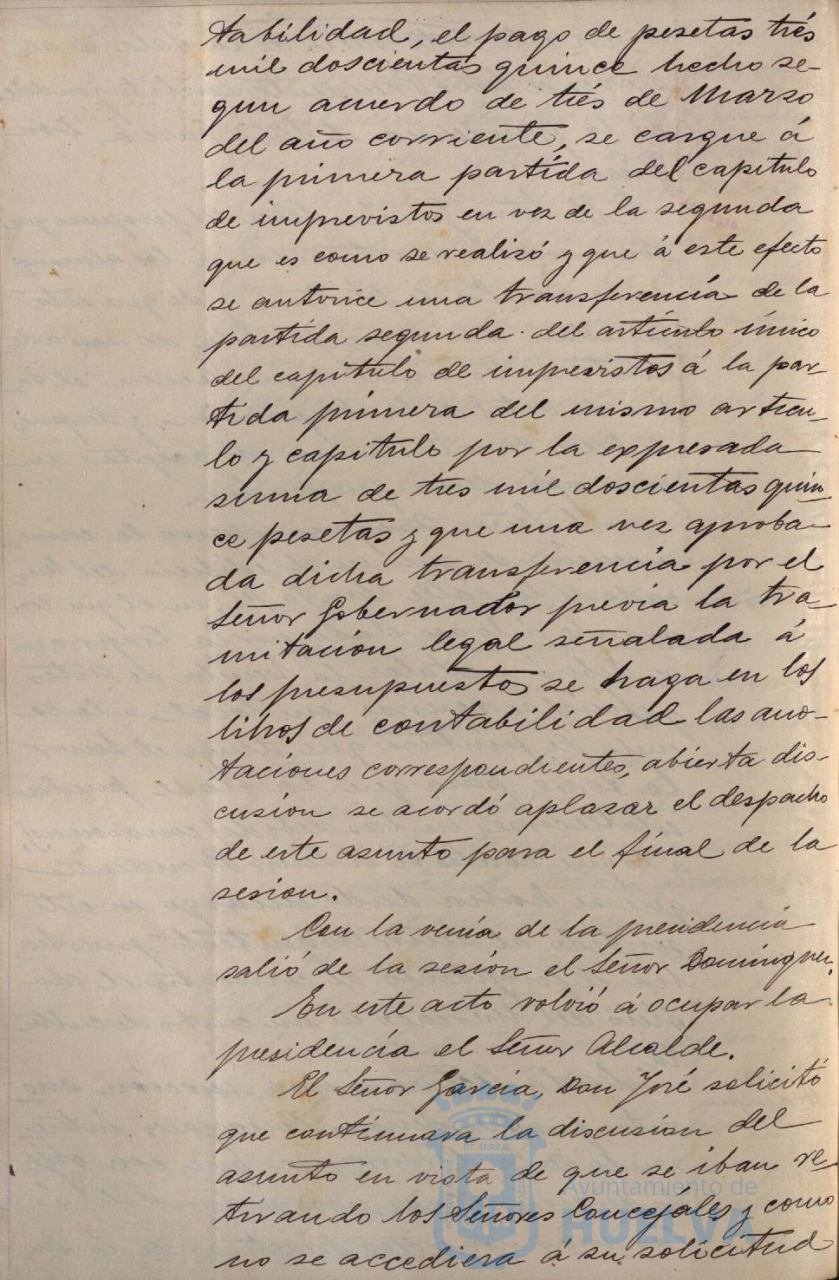 tabilidad, el pago de pesetas trés
mil doscientas quince hecho se-
gun acuerdo de trés de Marzo
del año corriente, se cargue á
la primera partida del capitulo
de imprevistos en vez de la segunda
que es como se realizó y que á este efecto
se autorice una transferencia de la
partida segunda del artículo único
del capitulo de imprevistos á la par-
tida primera del mismo articu-
lo y capitulo por la expresada
suma de tres mil doscientas quin-
ce pesetas y que una vez aproba-
da dicha transferencia por el
Señor Gobernador previa la tra-
mitación legal señalada á
los presupuestos se haga en los
libros de contabilidad las ano-
taciones correspondientes, abierta dis-
cusion se acordó aplazar el despacho
de este asunto para el final de la
sesion.
Con la venia de la presidencia
salió de la sesión el Señor Dominguez.
En este acto volvió á ocupar la
presidencia el Señor Alcalde.
El Señor García, Don José solicitó
que continuara la discusion del
asunto en vista de que se iban re-
tirando los Señores Concejáles y como
no se accediera á su solicitud
Ayuntamiento de
HUELVA